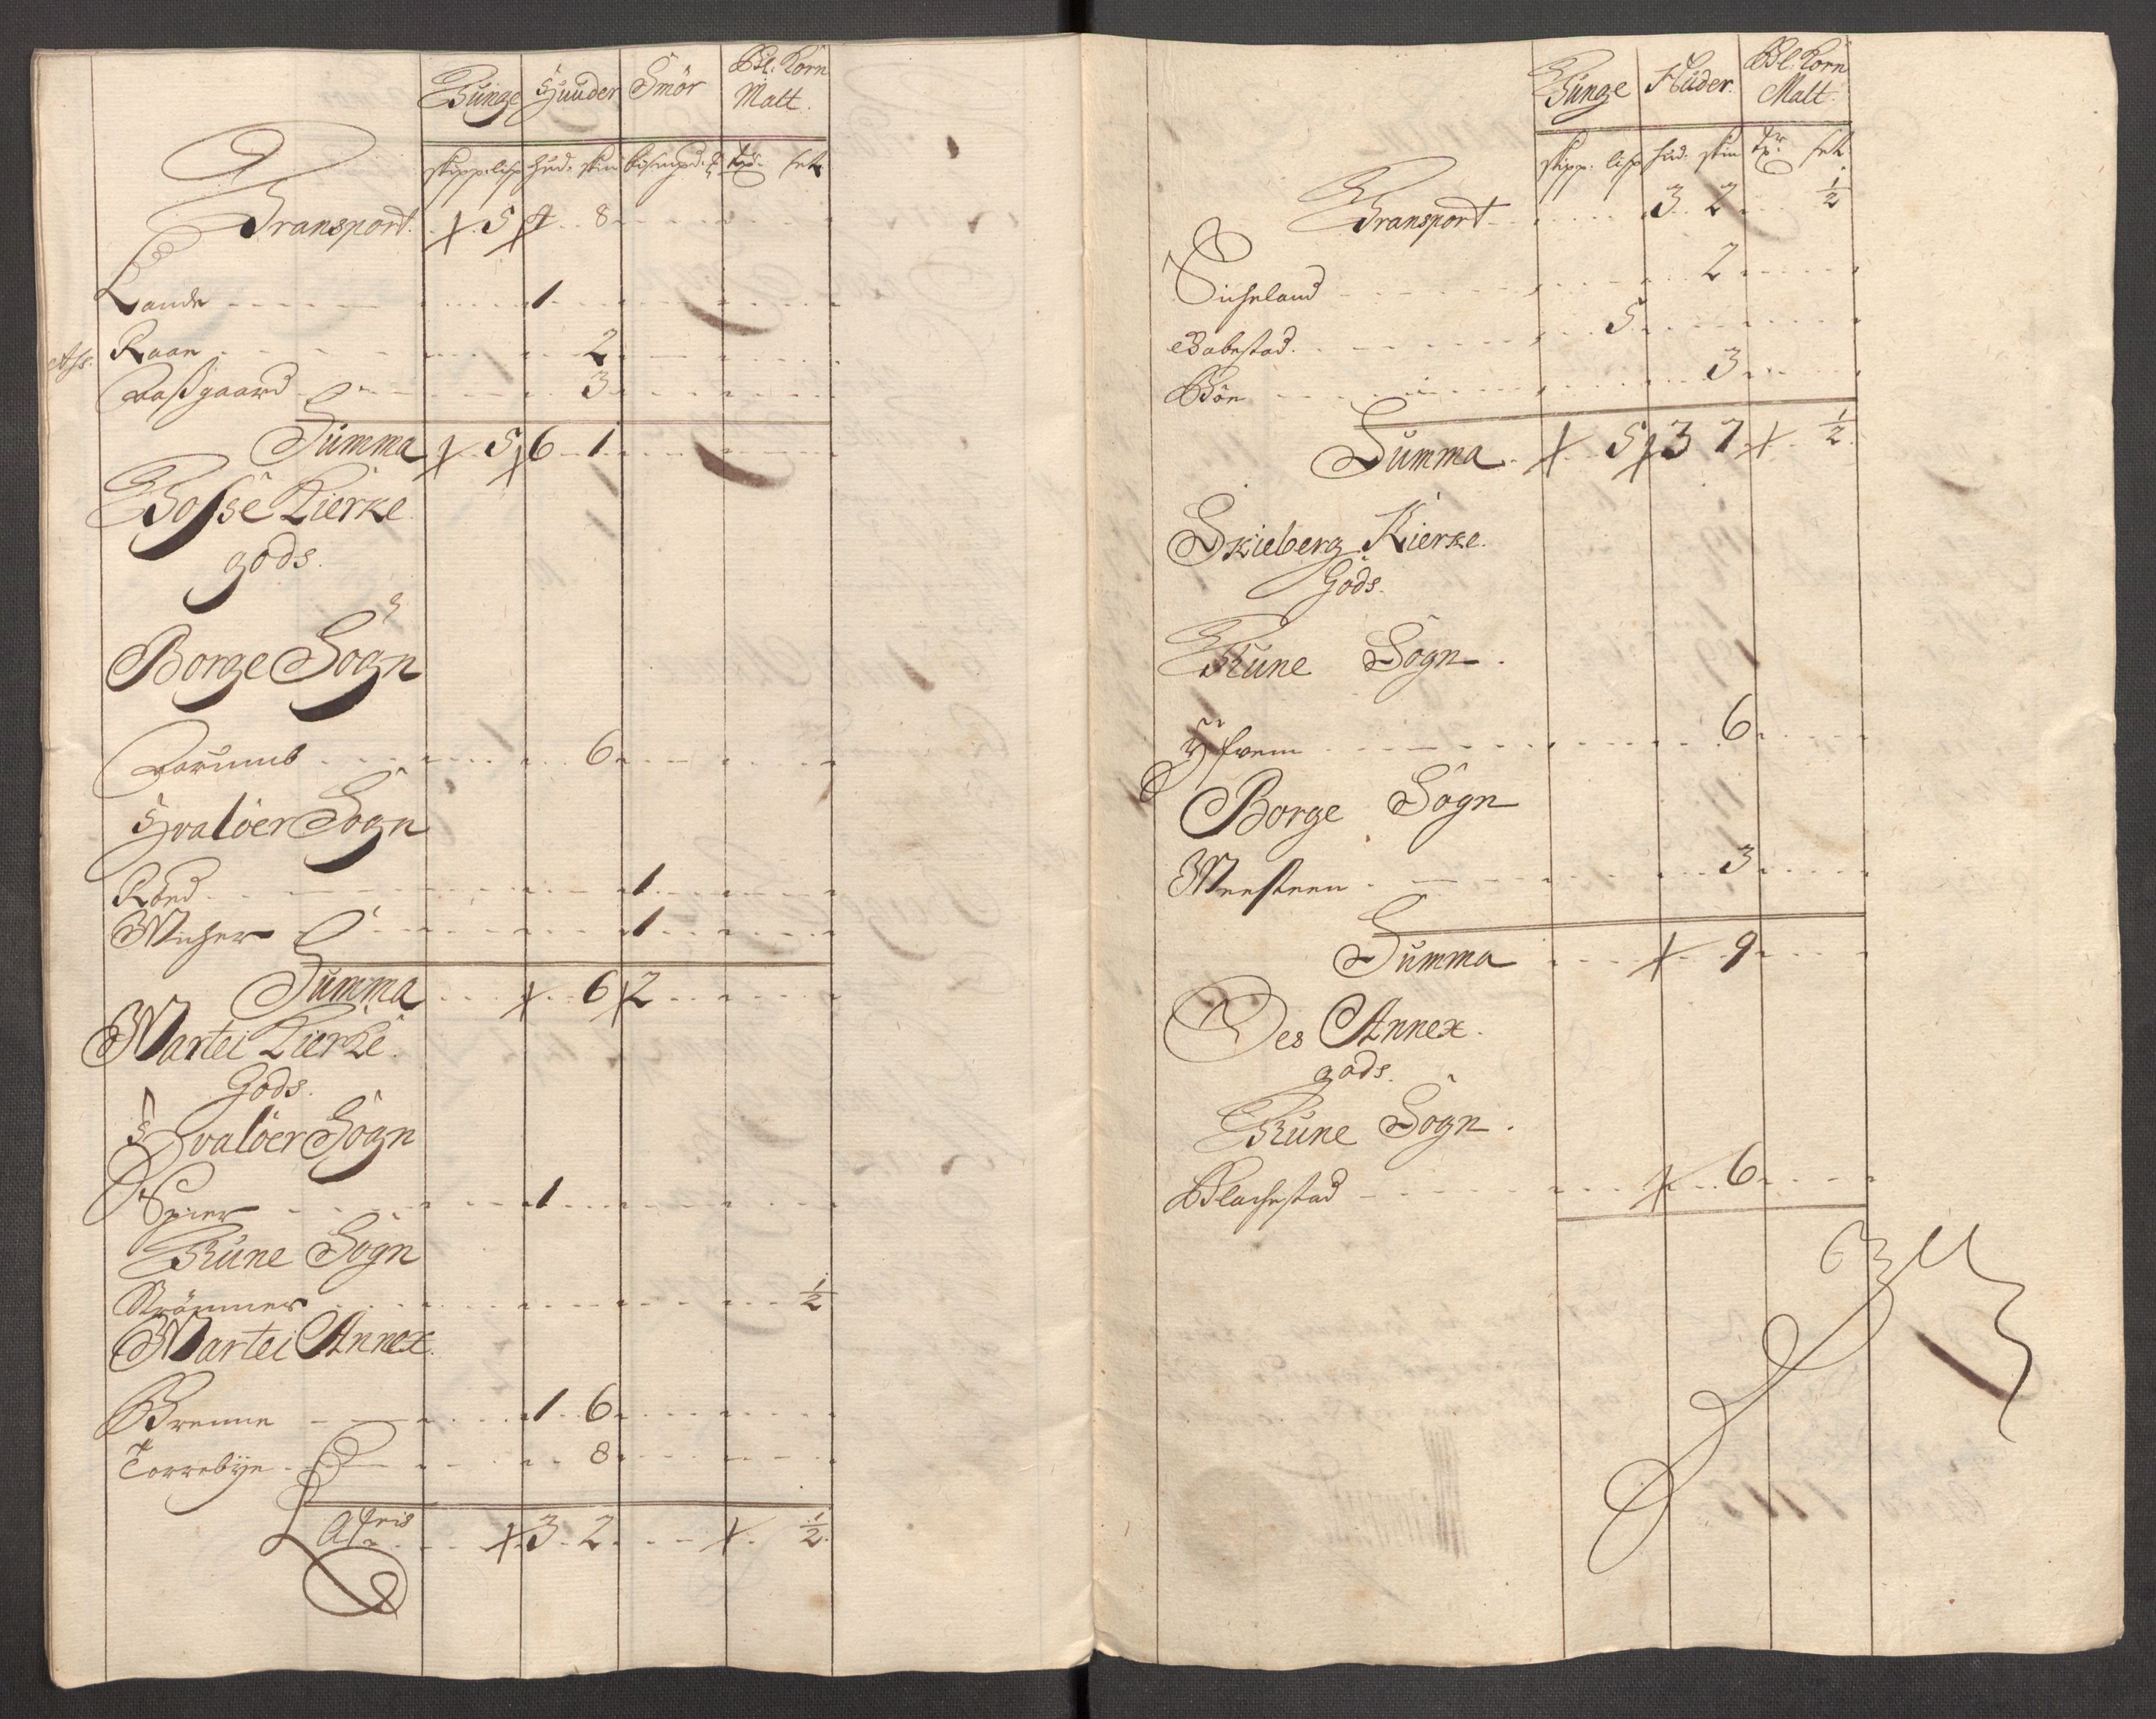 Tunge Huuder Smör Bl: Korn Malt.
skipp: lisp hud: skin bismpd: tdr: setr
Transport. + 5 + 4 8
Lande 1
Raae 2
Raßgaard 3
Summa + 5 + 6 1
Torsöe Kierke
gods.
Borge Sogn
Torumb 6
Hvalöer Sogn
Röed 1
Wicher 1
Summa + 6 + 2
Wartei Kierke
Gods.
Hvalöer Sogn
Spier 1
Tune Sogn
Strömmer ½
Wartei Annex.
Brenne 1 6
Torrebye 8
Lateris + 3 2 + ½
Tunge Huder. Bl. Korn Malt.
skipp. lisp hud: skin tdr setr
Transport 3 2 ½
Sicheland 2
Babestad. 5
Böe 3
Summa + 5 + 3 7 + ½
Skieberg Kierke.
Gods.
Tune Sogn.
Hofrem 6
Borge Sogn
Meesteen 3
Summa + 9
Des Annex.
gods.
Tune Sogn.
Blachestad + 6